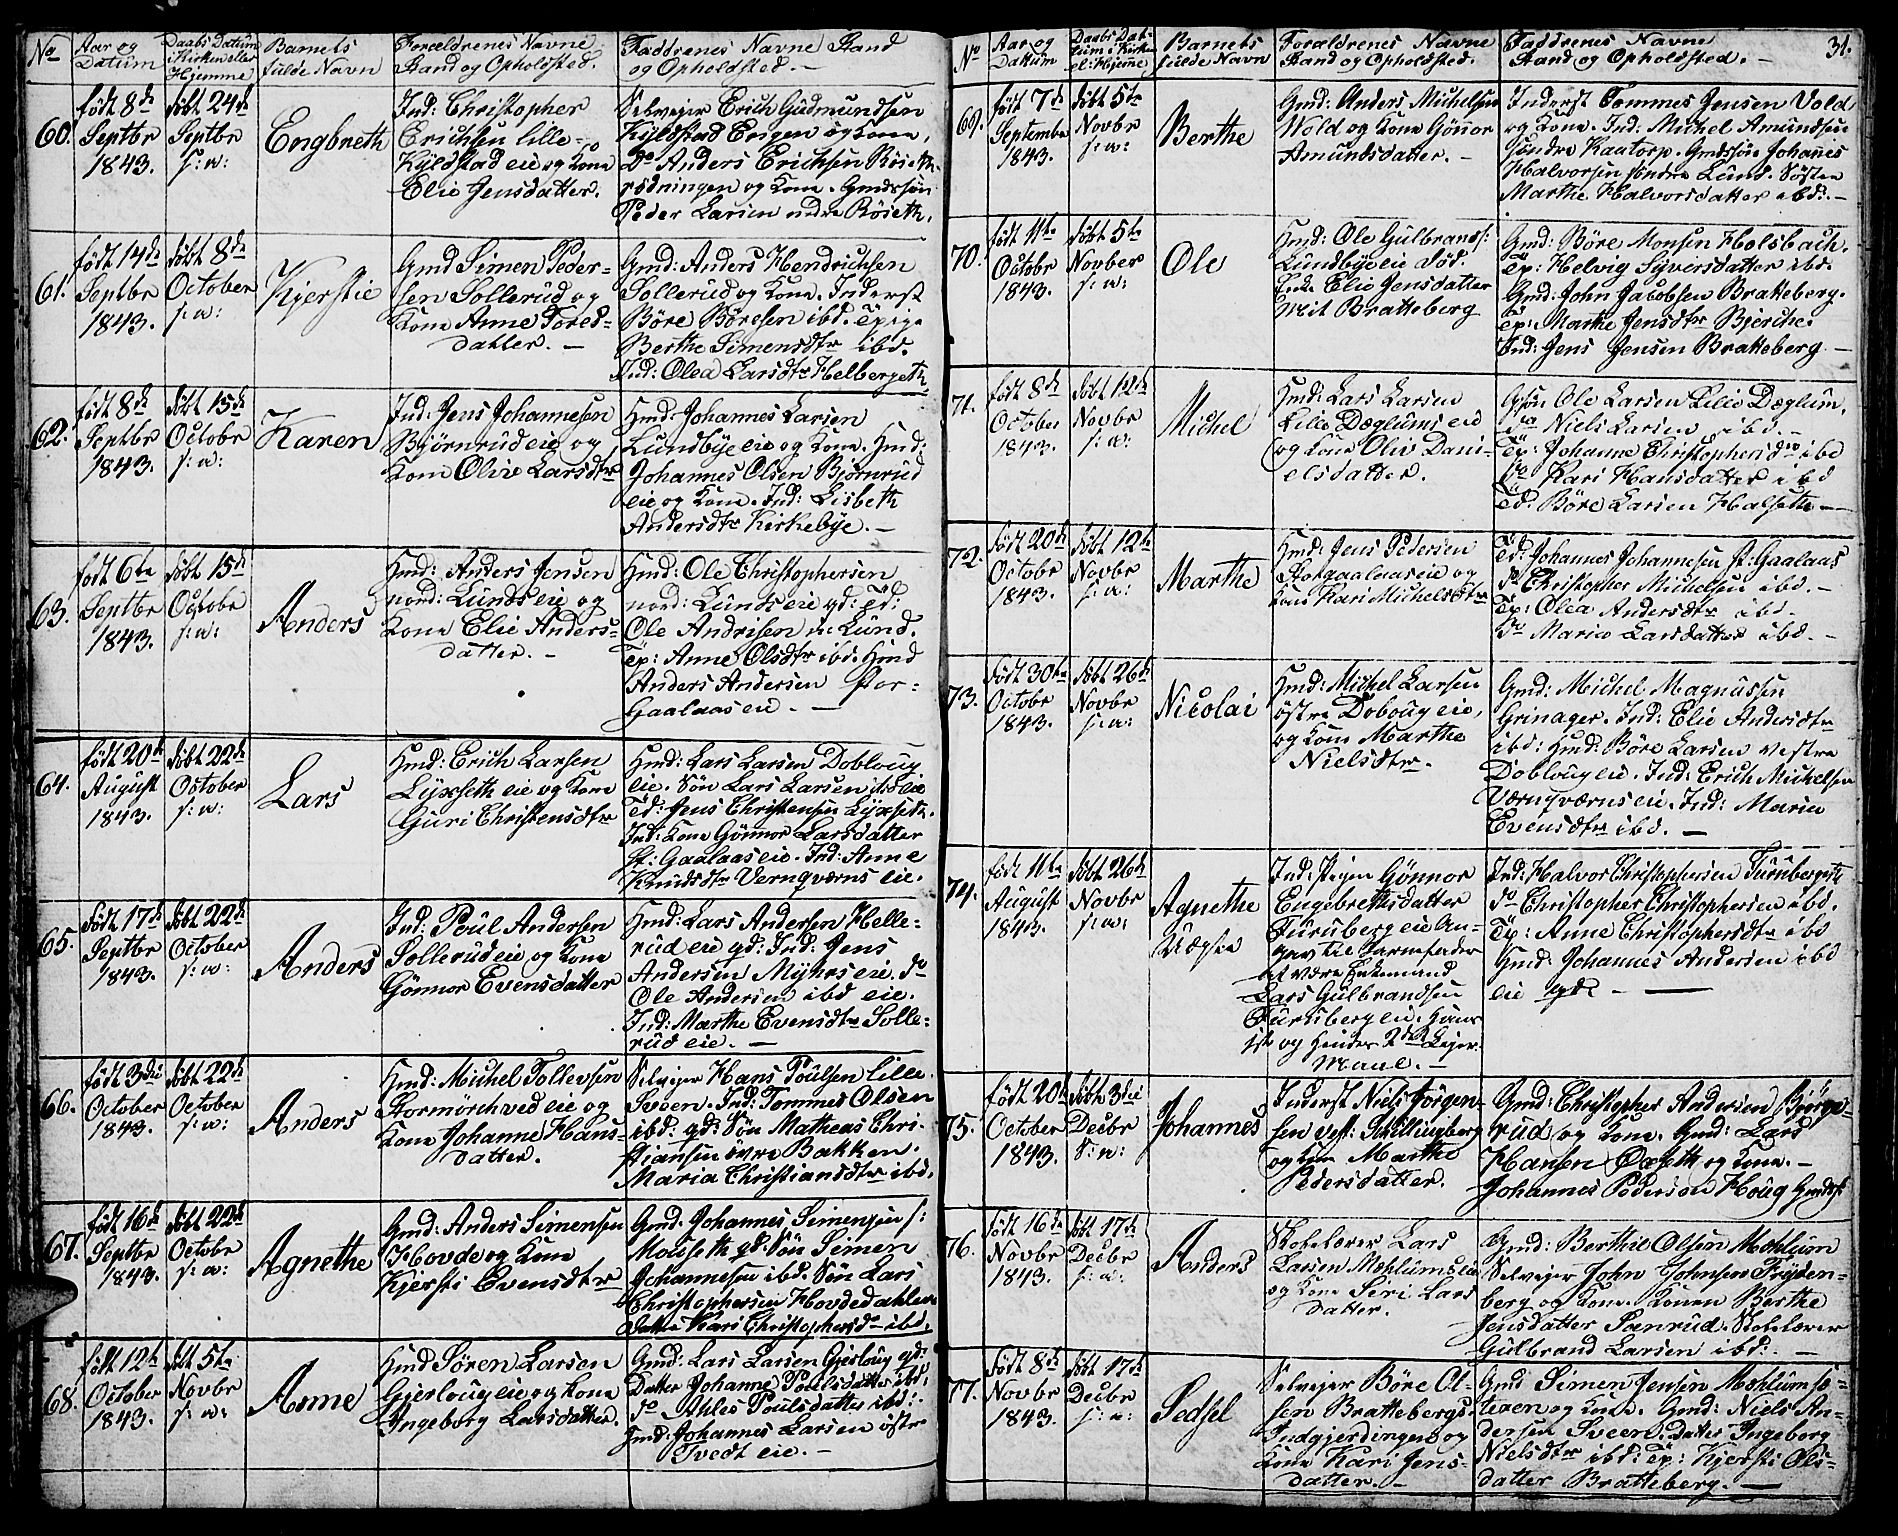 No
Aar og
Datum
Daabs Datum
i Kirken eller
Hjemme
Barnets
fulde Navn
Forældrenes Navne
Stand og Opholdsted.
Faddrenes Navne Stand
og Opholdsted. —
60.
født 8de
Septbr
1843.
døbt 24de
Septbr
s: a:
Engbreth
Ind: Christopher
Erichsen lille
Kyldstad eie og Kone
Elie Jensdatter.
Selveier Erich Gudmundsen
Kyldstad Enigen og Kone,
Do Anders Erichsen
rødningen og Kone. Gmdssøn
Peder Larsen ndre Røseth.
61.
født 14de
Septbr
1843.
døbt 8de
October
s: a:
Kjerstie
Gmd Simen Peder-
sen Sollerud og
Kone Anne Tores-
datter. —
Gmd: Anders Hendrichsen
Sollerud og Kone. Inderst
Böre Böresen ibd. Tpige
Berthe Simensdtr ibd.
Ind: Olea Larsdtr Helbergeth
62.
født 8de
Septbr
1843.
døbt 15de
Octobr
s: a:
Karen
Ind: Jens Johannesen
Bjørnrud eie og
Kone Oliv Larsdtr
Hmd: Johannes Larsen
Lundbye eie og Kone. Hmd:
Johannes Olsen Bjørnrud
eie og Kone. Ind: Lisbeth
Andersdtr Kirkebye. —
63.
født 6te
Septbr
1843.
døbt 15de
Octobr
s: a:
Anders
Hmd: Anders Jensen
nord: Lunds eie og
Kone Elie Anders-
datter. —
Hmd: Ole Christophersen
nord: Lunds eie gd: Td:
Ole Andrisen n: Lund.
Tp: Anne Olsdtr ibd. Hmd
Anders Andersen Stor-
Gaalaas eie. —
64.
født 20de
August
1843.
døbt 22de
October
s: a:
Lars
Hmd: Erich Larsen
Lyxseth eie og Kone
Guri Christensdtr
Hmd: Lars Larsen Dobloug
eie. Søn Lars Larsen
Td: Jens Christensen Lyxseth.
Ind: Kone Gönnor Larsdatter
St: Gaalaas eie. Ind: Anne
Knudsdtr Vernqværns eie.
65.
født 17de
Septbr
1843.
døbt 22de
October
s: a:
Anders
Ind: Poul Andersen
Sollerud eie og Kone
Gönnor Evensdatter
Hmd: Lars Andersen Helle-
rud eie gd: Ind: Jens
Andersen Myhrs eie. do
Ole Andersen ibd eie.
Ind: Marthe Evensdtr Solle-
rud eie. —
66.
født 3die
October
1843.
døbt 22de
October
s: a:
Anders
Hmd: Michel Tollevsen
Stormörchved eie og
Kone Johanne Hans-
datter.
Selveier Hans Poulsen lille
Sveen. Ind: Tommes Olsen
ibd: gd: Søn Matheas Chri-
stiansen övre Bakken.
Maria Christiansdtr ibd.
67.
født 16de
Septbr
1843.
døbt 22de
Octobr
s: a:
Agnethe
Gmd: Anders Simensen
Hovde og Kone
Kjersti Evensdtr
Gmd. Johannes Simensen s:
Mouseth gd: Søn Simen
Johannesen ibd. Søn Lars
Christophersen Hovdedahlen
Datter Kari Christophersdtr ibd.
68.
født 12te
October
1843.
døbt 5te
Novbr
s: a:
Anne
Hmd Søren Larsen
Gjerloug eie og Kone
Ingeborg Larsdatter.
Gmd: Lars Larsen Gjerloug gd:
Datter Johanne Poulsdatter ibd:
do Ahles Poulsdatter ibd:
Hmd: Johannes Larsen östre
Tvedt eie. —
31.
No
Aar og
Datum
Daabs Da-
tum i Kirke
el: Hjeme
Barnets
fulde Navn
Forældrenes Navne
Stand og Opholdsted.
Faddrenes Navne
Stand og Opholdsted. —
69.
født 7de
Septembr
1843.
døbt 5te
Novbr
s: a:
Berthe
Gmd: Anders Michelsen
Wold og Kone Gönnor
Amundsdatter. —
Inderst Tommes Jensen Vold
og Kone. Ind: Michel Amundsen
søndre Kantorp. Gmdssøn Johanes
Halvorsen søndre Lund. Søster
Marthe Halvorsdatter ibd. —
70.
født 11te
Octobr
1843.
døbt 5te
Novber
s: a:
Ole
Hmd: Ole Gulbrands:
Lundbye eie død:
Enke Elie Jensdatter
Bratteberg
Gmd: Böre Monsen Holsbach.
Tp: Helvig Syversdatter ibd.
Gmd: John Jacobsen Bratteberg.
Tp: Marthe Jensdtr Bjerche.
Ind: Jens Jensen Bratteberg —
71.
født 8de
October
1843.
døbt 12te
Novbr
s: a:
Michel
Hmd: Lars Larsen
Lille Dæglums eie
og Kone Oliv Dani-
elsdatter.
Gsøn Ole Larsen Lille Dæglum,
do Niels Larsen ibd. —
Tp: Johanne Christophersdtr ibd
do Kari Hansdatter ibd
Td: Böre Larsen Halseth —
72.
født 20de
Octobr
1843.
døbt 12te
Novbr
s: a:
Marthe
Hmd: Jens Pedersen
Storgaalaas eie og
Kone Kari Michelsdtr
Td: Johannes Johannesen st: Gaalaas
do Christopher Michelsen ibd. —
Tp: Olea Andersdtr ibd.
do Marie Larsdatter ibd. —
73.
født 30te
Octobr
1843.
døbt 26de
Novbr
s: a:
Nicolai
Hmd: Michel Larsen
østre Doboug eie,
og Kone Marthe
Nielsdtr.
Gmd: Michel Magnussen
Grinager. Ind: Elie Andersdtr
ibd: Hmd: Böre Larsen vestre
Dobloug eie. Ind: Erich Michelsen
Værnqværns eie. Ind: Maria
Evensdtr ibd. —
74.
født 11te
August
1843.
døbt 26de
Novbr
s: a:
Agnethe
Uægte
Ind: Pigen Gönnor
Engebrethsdatter
Furuberg eie An-
gav til Barnefader
at være Enkemand
Lars Gulbrandsen
Furuberg eie. Hans
1ste og Hendes 2det Leyer-
maal. —
Ind: Halvor Christophersen Furuberg eie
do Christopher Christophersen ibd.
Tp: Anne Christophersdtr ibd
Gmd: Johannes Andersen ibd
eie gd: —
75.
født 20de
October
1843.
døbt 3die
Decbr
s: a:
Johannes
Inderst Niels Jörgen-
sen vest: Skillingberg
og Kone Marthe
Pedersdatter.
Gmd: Christopher Andersen Björge-
rud og Kone. Gmd: Lars
Hansen Oxseth og Kone. —
Johannes Pedersen Houg Gmdss:
76.
født 16de
Novbr
1843.
døbt 17de
Decbr
s: a:
Anders
Skolelærer Lars
Larsen Mæhlums eie
og Kone Siri Lars
datter.
Gmd: Berthe Olsen Mæhlum
Selveier John Johnsen Fryden-
berg og Kone. Konen Berthe
Jensdatter Sænrud. Skolelærer
Gulbrand Larsen ibd: —
77.
født 8de
Novbr
1843.
døbt 17de
Decbr
s: a:
Sedsel
Selveier Böre Ol-
sen Brattebergs
Indgjerdingen og
Kone Kari Jens-
datter. —
Gmd Simen Jensen Mæhlum sø-
teren og Kone. Gmd: Niels An-
dersen Sveen. Datter Ingeborg
Nielsdtr ibd: Tp: Kjersti Ols-
datter Bratteberg. —